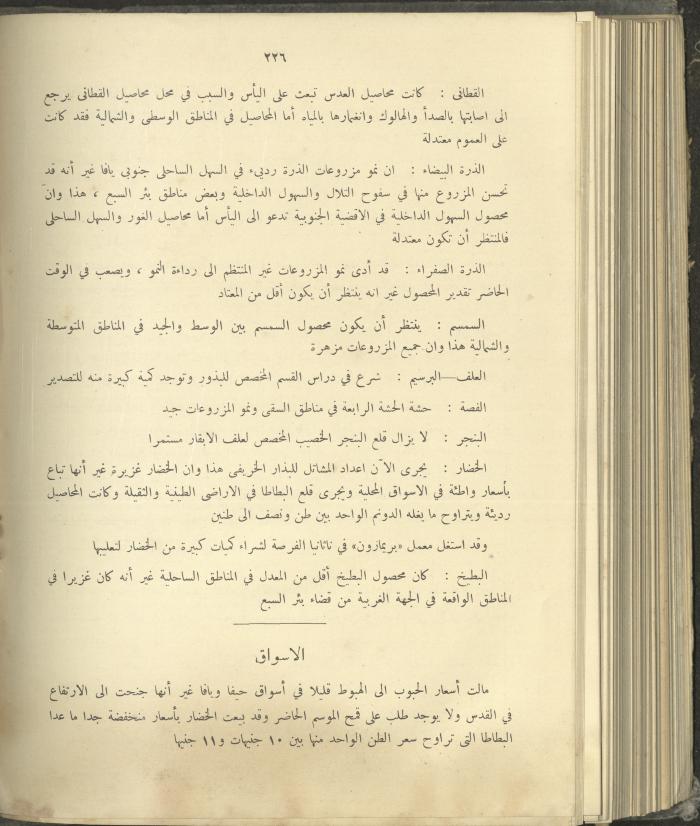 ٢٢٦
القطانى : كانت محاصيل العدس تبعث على اليأس والسبب في محل محاصيل القطانى يرجع
الى اصابتها بالصدأ والهالوك وانغمارها بالمياه أما المحاصيل في المناطق الوسطى والشمالية فقد كانت
على العموم معتدلة
الذرة البيضاء : ان نمو مزروعات الذرة رديىء في السهل الساحلى جنوبى يافا غير أنه قد
تحسن المزروع منها في سفوح التلال والسهول الداخلية وبعض مناطق بئر السبع ، هذا وان
محصول السهول الداخلية في الاقضية الجنوبية تدعو الى اليأس أما محاصيل الغور والسهل الساحلى
فالمنتظر أن تكون معتدلة
الذرة الصفراء : قد أدى نمو المزروعات غير المنتظم الى رداءة النمو ، ويصعب في الوقت
الحاضر تقدير المحصول غير انه ينتظر أن يكون أقل من المعتاد
السمسم : ينتظر أن يكون محصول السمسم بين الوسط والجيد في المناطق المتوسطة
والشمالية هذا وان جميع المزروعات مزهرة
العلف—البرسيم : شرع في دراس القسم المخصص للبذور وتوجد كمية كبيرة منه للتصدير
الفصة : حشة الحشة الرابعة في مناطق السقى ونمو المزروعات جيد
البنجر : لا يزال قلع البنجر الخصيب المخصص لعلف الابقار مستمرا
الخضار : يجرى الآن اعداد المشاتل للبذار الخريفى هذا وان الخضار غزيرة غير أنها تباع
بأسعار واطئة في الاسواق المحلية ويجرى قلع البطاطا في الاراضى الطينية والثقيلة وكانت المحاصيل
رديئة ويتراوح ما يغله الدونم الواحد بين طن ونصف الى طنين
وقد استغل معمل «بريمازون» في ناتانيا الفرصة لشراء كميات كبيرة من الخضار لتعليبها
البطيخ : كان محصول البطيخ أقل من المعدل في المناطق الساحلية غير أنه كان غزيرا في
المناطق الواقعة في الجهة الغربية من قضاء بئر السبع
الاسواق
مالت أسعار الحبوب الى الهبوط قليلا في أسواق حيفا ويافا غير أنها جنحت الى الارتفاع
في القدس ولا يوجد طلب على قمح الموسم الحاضر وقد بيعت الخضار بأسعار منخفضة جدا ما عدا
البطاطا التى تراوح سعر الطن الواحد منها بين ١٠ جنيهات و١١ جنيها